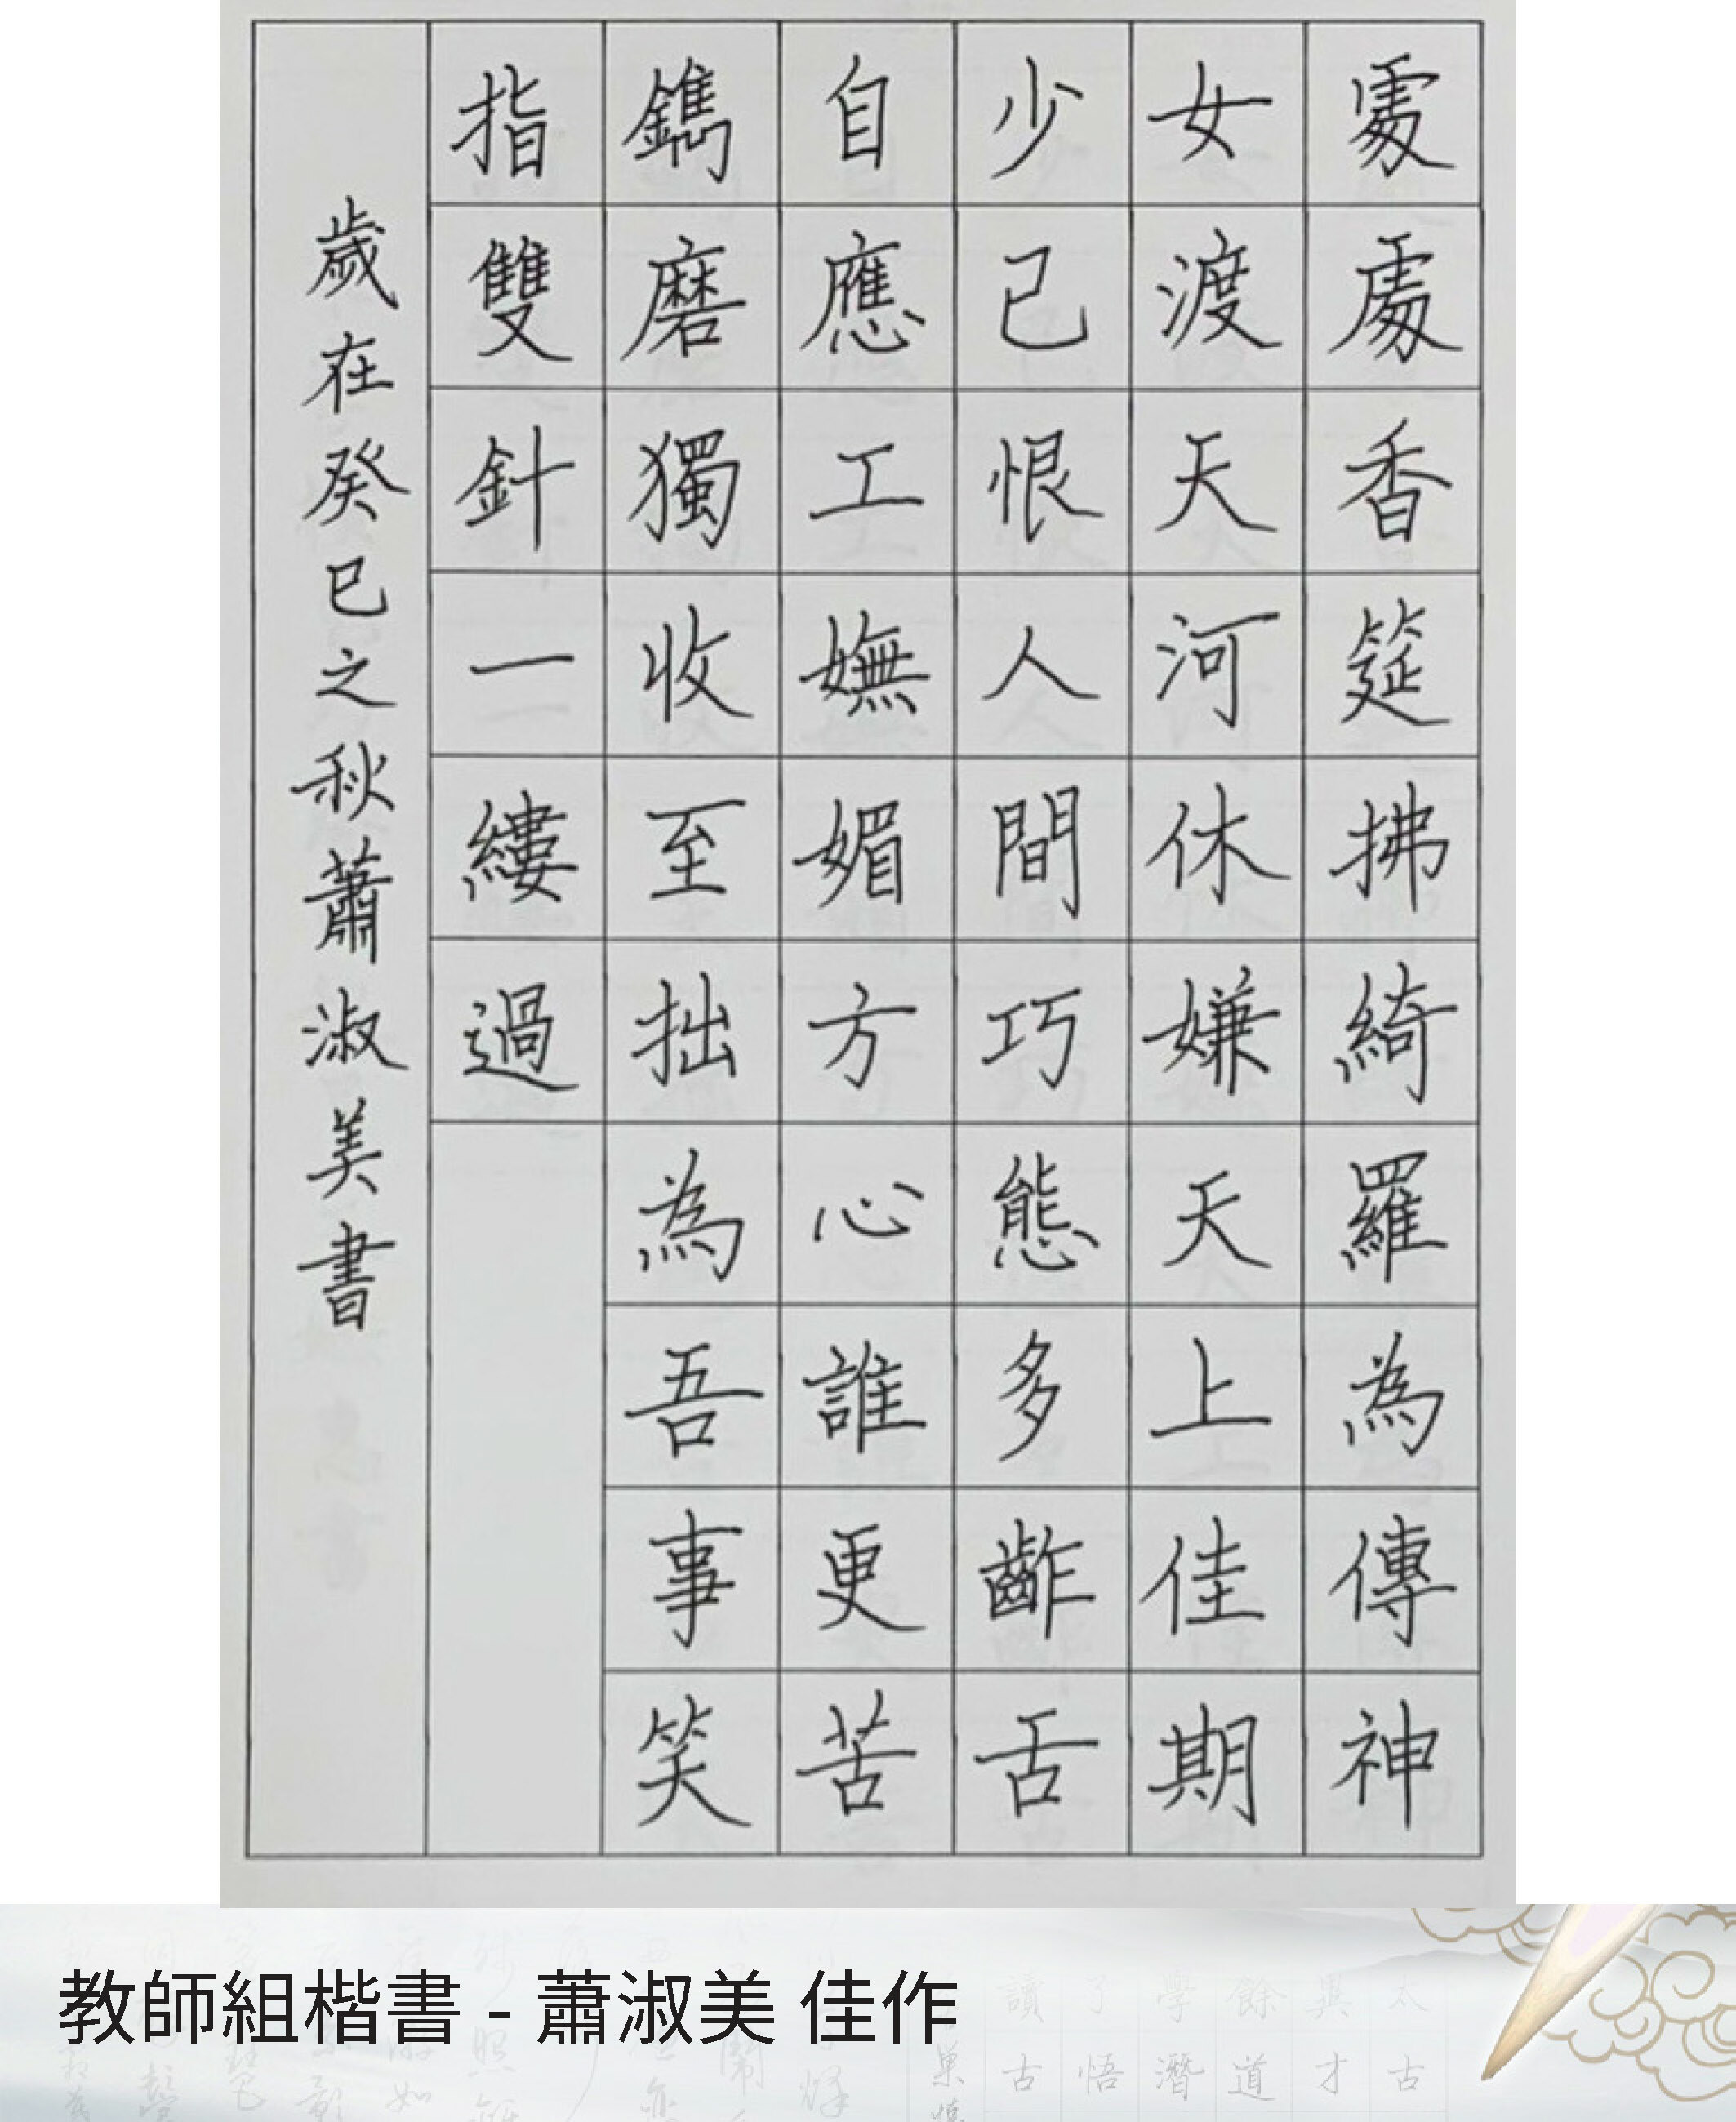 處處香筵拂綺羅為傳神
女渡天河休嫌天上佳期
少己恨人間巧態多齰舌
自應工嫵媚方心誰更苦
鐫磨獨收至拙為吾事笑
指雙針一縷過
歲在癸巳之秋蕭淑美書
教師組楷書 - 蕭淑美 佳作